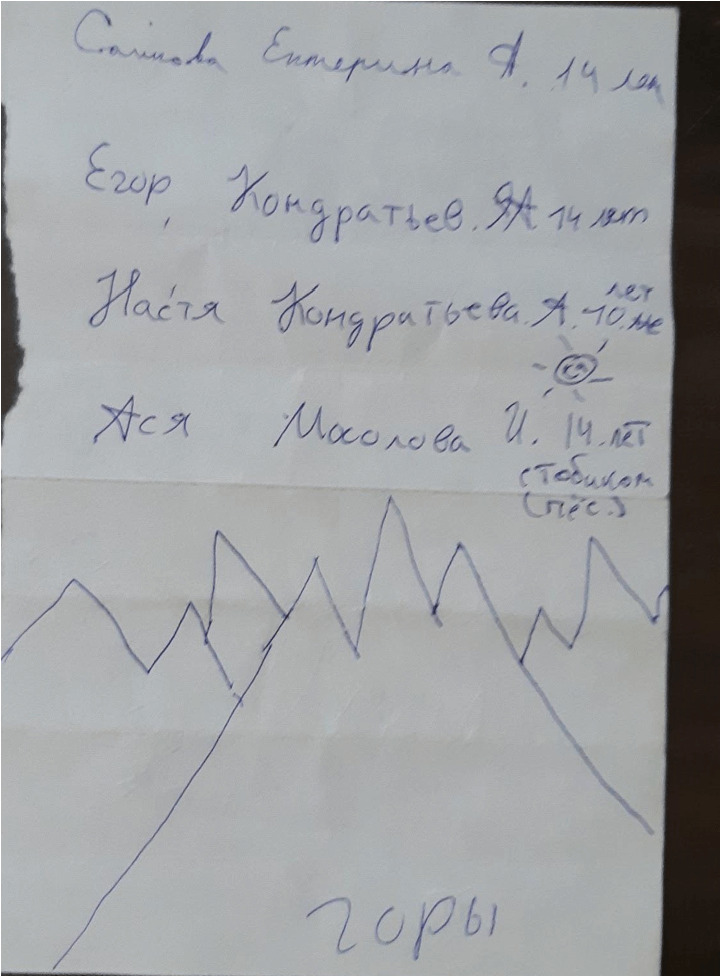 Ектерина А. 14 лет
Егор, Кондратьев. ЯА 14 лет
Настя Кондратьева. А. 10 лет
Ася Мосолова И. 14. лет
с Тобиком
(пёс.)
горы